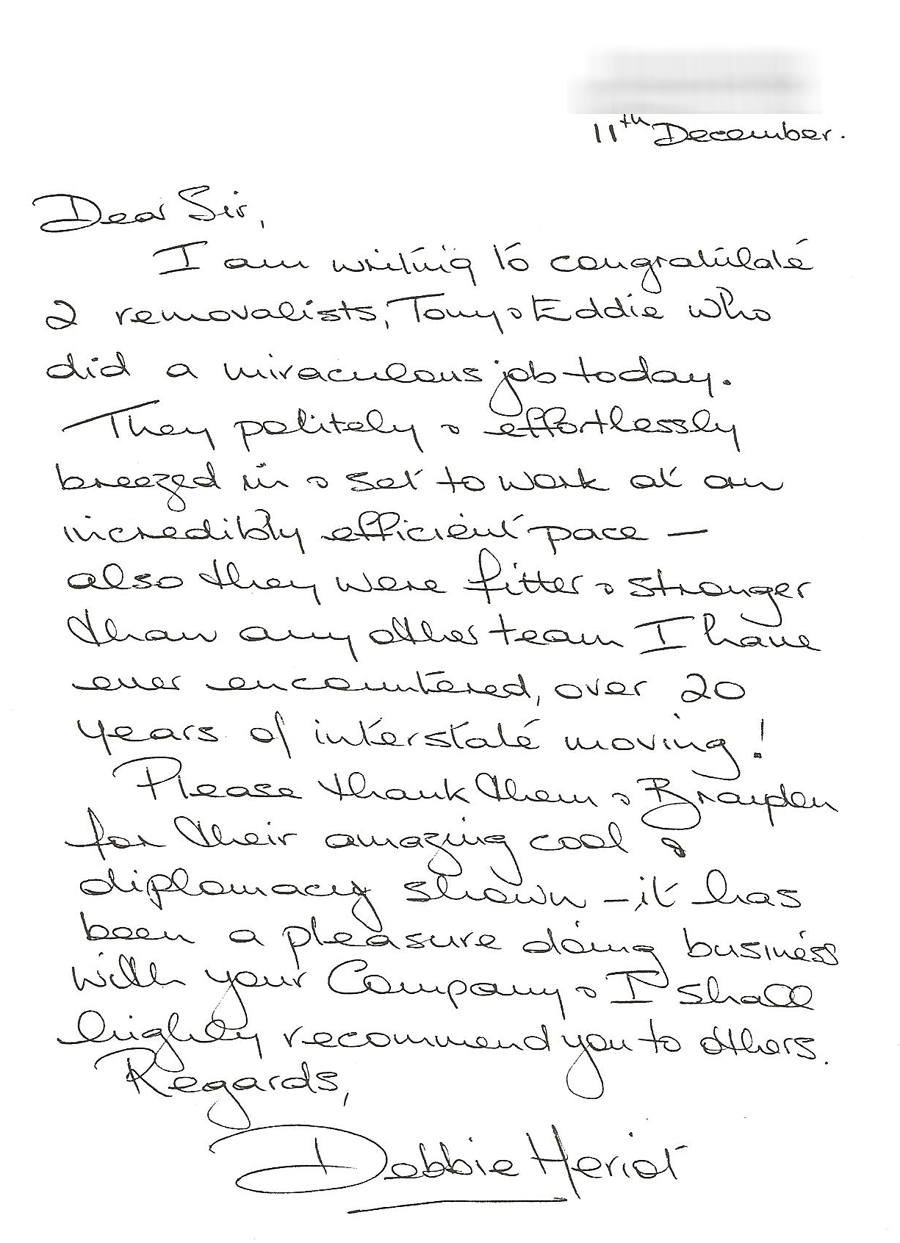 11th December.
Dear Sir,
I am writing to congratulate
2 removalists, Tony & Eddie who
did a miraculous job today.
They politely & effortlessly
breezed in & set to work at an
incredibly efficient pace —
also they were fitter & stronger
than any other team I have
ever encountered, over 20
years of interstate moving!
Please thank them & Brayden
for their amazing cool &
diplomacy shown – it has
been a pleasure doing business
with your Company & I shall
highly recommend you to others.
Regards,
Debbie Heriot